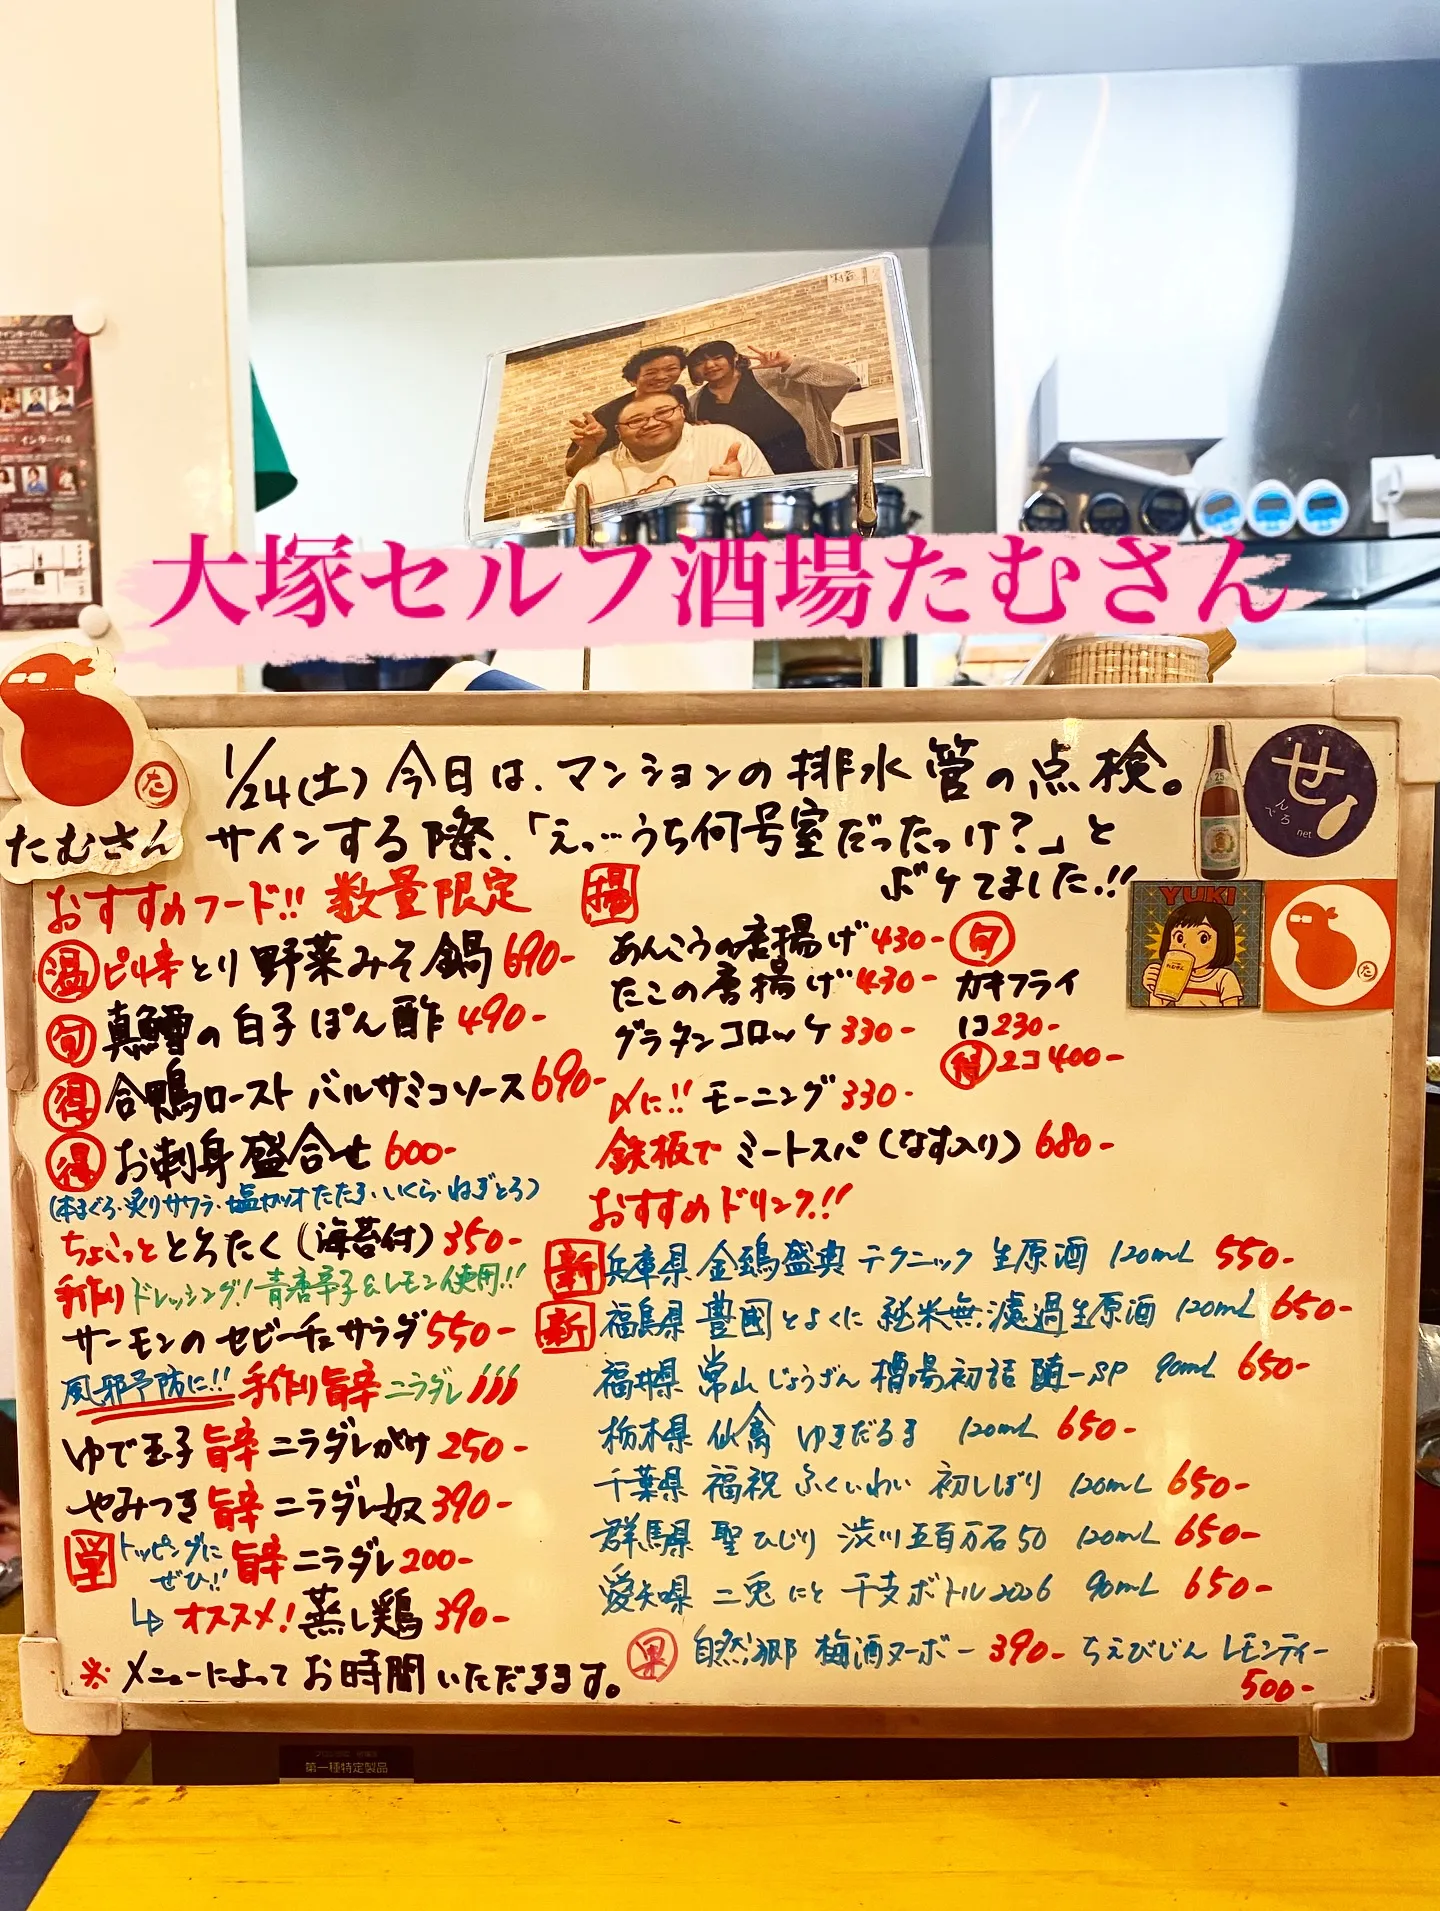 大塚セルフ酒場たむさん
インターバル
たむさん
1/24(土) 今日は、マンションの排水管の点検。
サインする際、「えっ…うち何号室だったっけ?」と
ボケてました!!
せ
んべろ
net
25
YUKI
おすすめフード!! 数量限定
温 ピリ辛 とり野菜みそ鍋 690-
旬 真鱈の白子ぽん酢 490-
得 合鴨ロースト バルサミコソース 690-
得 お刺身盛合せ 600-
(本まぐろ・炙りサワラ・塩カツオたたき・いくら・ねぎとろ)
ちょこっと とろたく (海苔付) 350-
手作りドレッシング!青唐辛子&レモン使用!!
サーモンのセビーチェサラダ 550-
風邪予防に!! 手作り旨辛ニラダレ
ゆで玉子 旨辛 ニラダレがけ 250-
やみつき 旨辛 ニラダレ奴 390-
単 トッピングにぜひ!! 旨辛 ニラダレ 200-
オススメ! 蒸し鶏 390-
※メニューによってお時間いただきます。
揚
あんこうの唐揚げ 430-
たこの唐揚げ 430-
グラタンコロッケ 330-
旬
カキフライ
1コ 230-
得 2コ 400-
〆に!! モーニング 330-
鉄板で ミートスパ (なす入り) 680-
おすすめドリンク!!
新 兵庫県 金鵄盛典 テクニック 生原酒 120mL 550-
新 福島県 豊國 とよくに 純米無濾過生原酒 120mL 650-
福井県 常山 じょうざん 槽場初詰 随一SP 90mL 650-
栃木県 仙禽 ゆきだるま 120mL 650-
千葉県 福祝 ふくいわい 初しぼり 120mL 650-
群馬県 聖 ひじり 渋川五百万石50 120mL 650-
愛知県 二兎 にと 干支ボトル2026 90mL 650-
果 自然郷 梅酒ヌーボー 390- ちえびじん レモンティー
500-
第一種特定製品